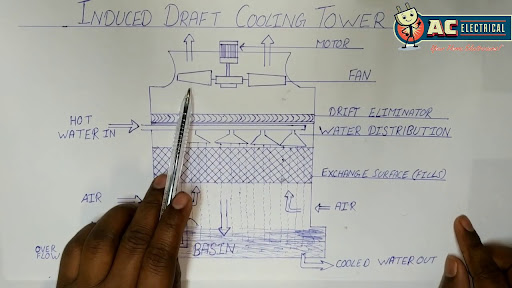 INDUCED DRAFT COOLING TOWER
AC ELECTRICAL
MOTOR
FAN
DRIFT ELIMINATOR
HOT
WATER IN
WATER DISTRIBUTION
EXCHANGE SURFACE (FILLS)
AIR
AIR
OVER
FLOW
BASIN
COOLED WATER OUT